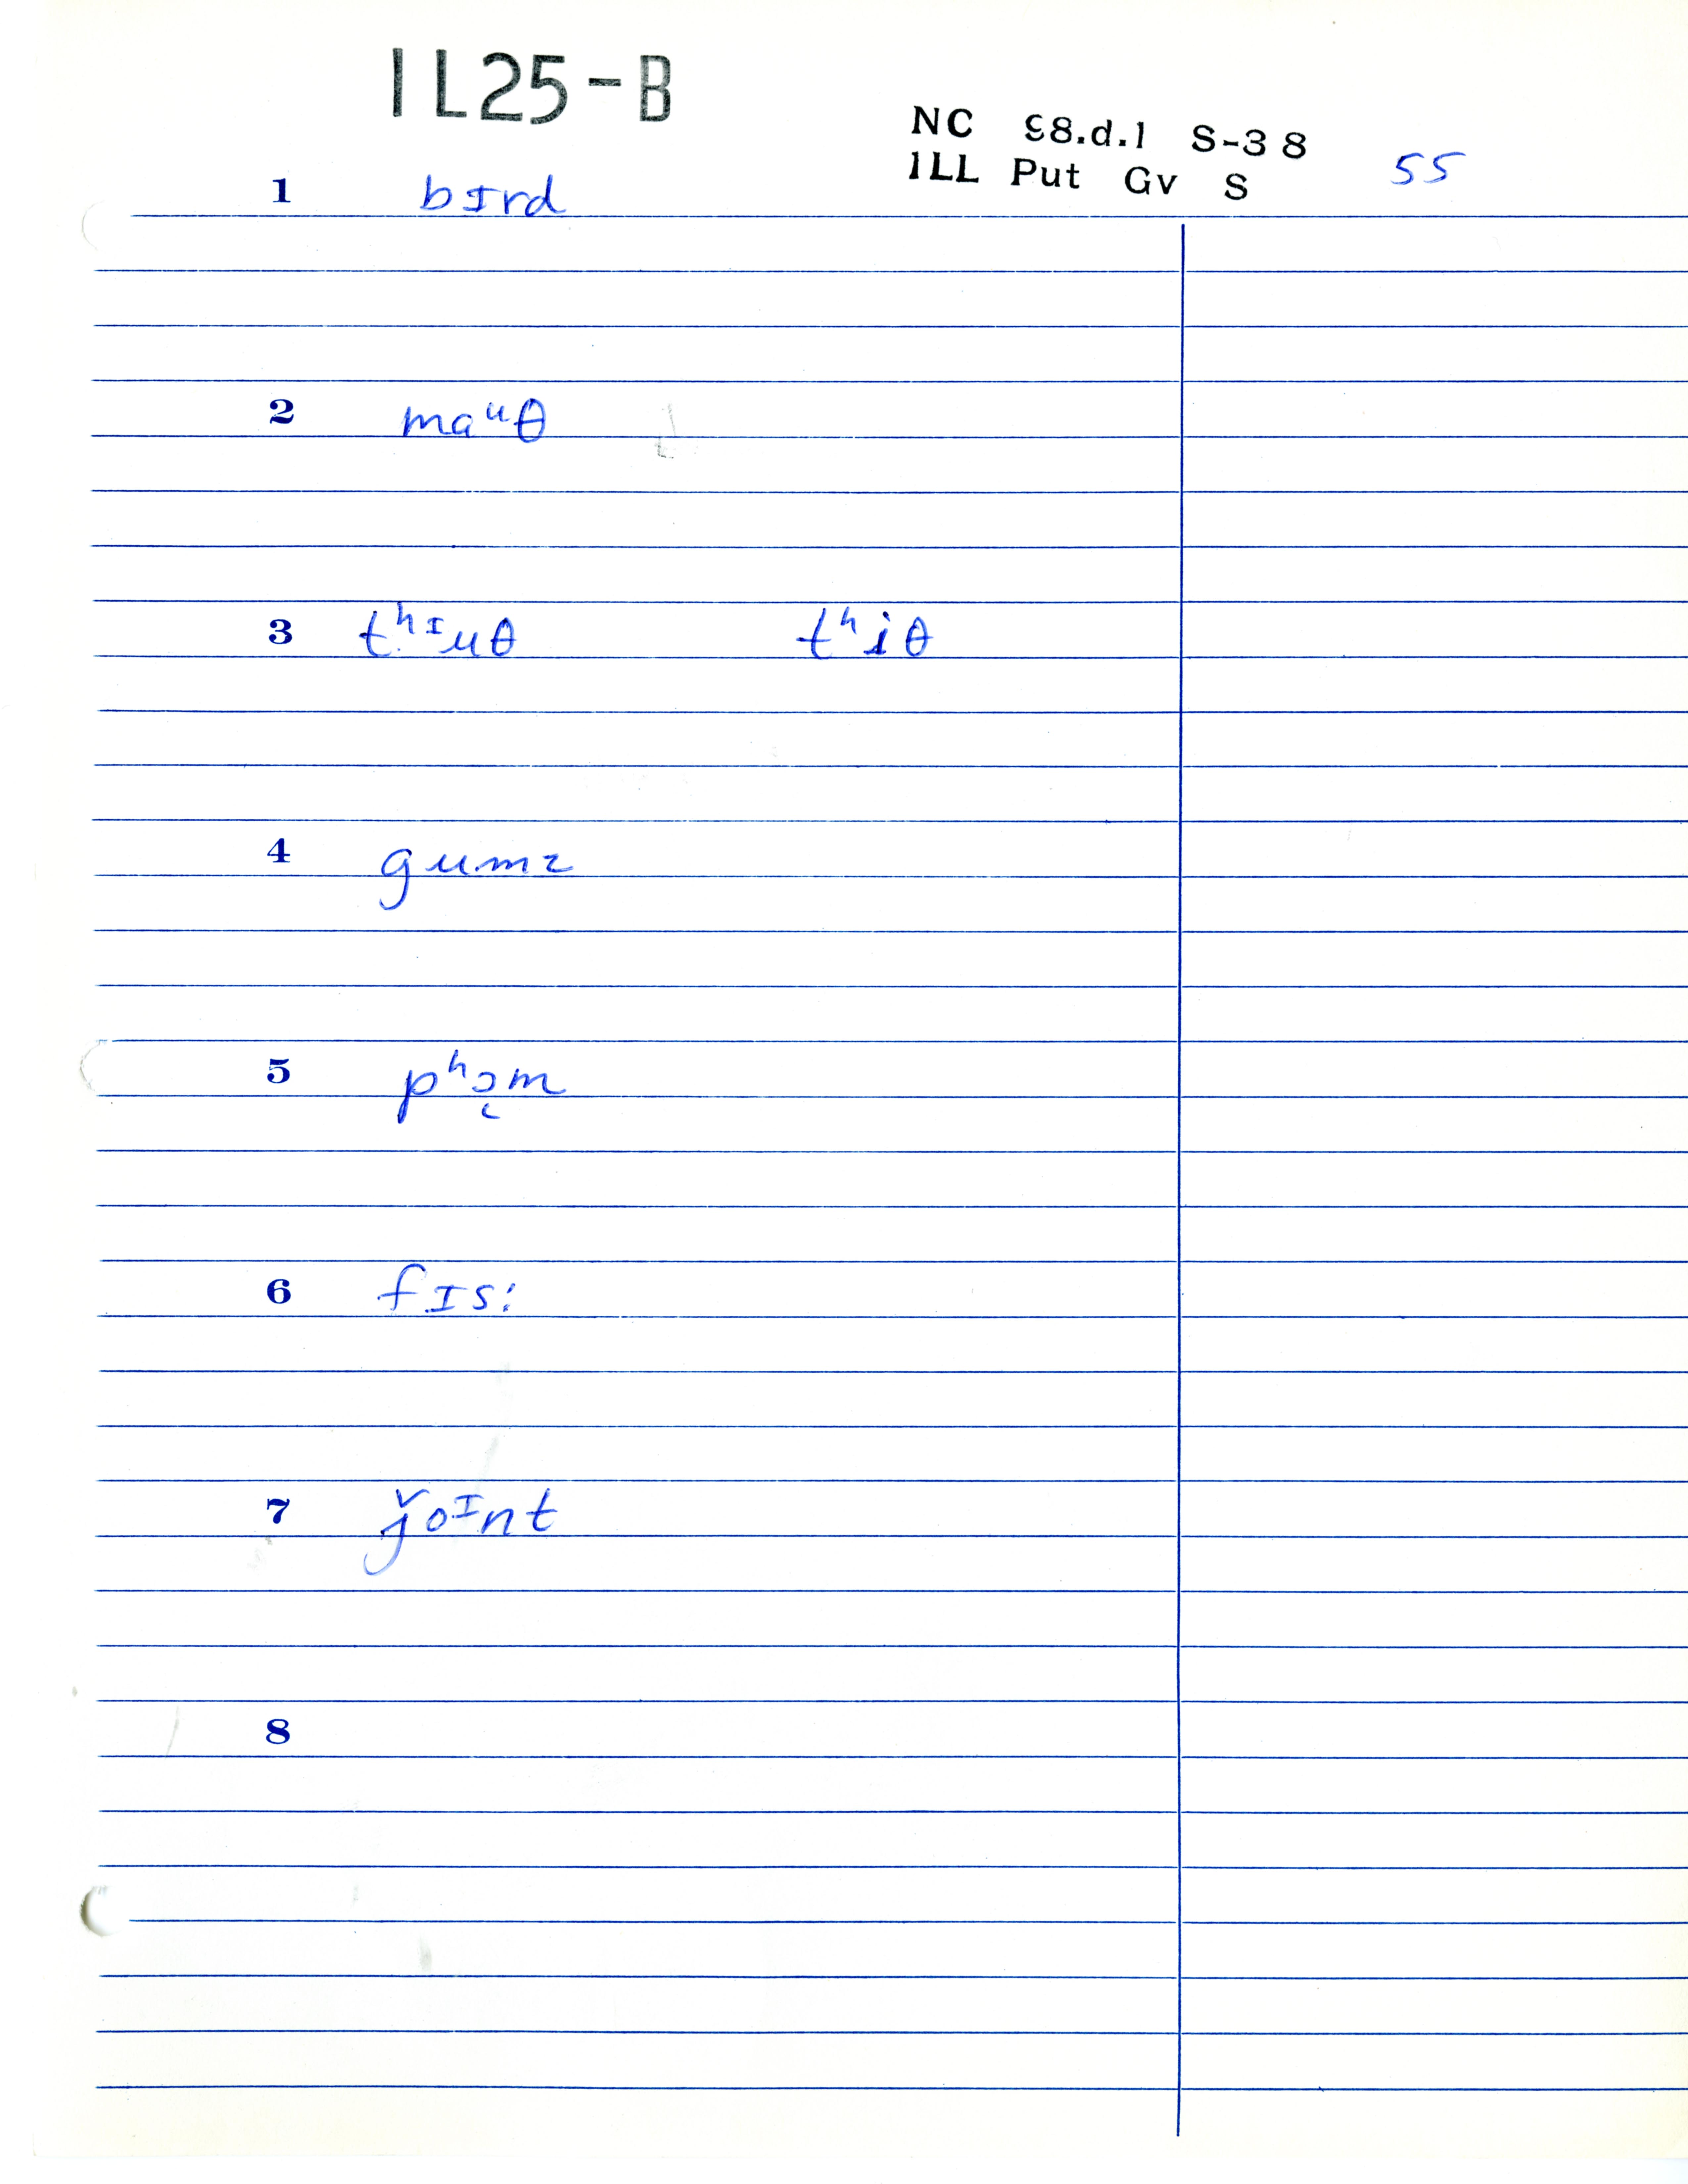 IL25-B
NC 98.d.1 S-38
ILL Put Gv S 55
1 bɪrd
2 maᵘθ
3 tʰᶦuθ tʰiθ
4 gumz
5 pʰɔ̜m
6 fɪs:
7 ǰoᶦnt
8